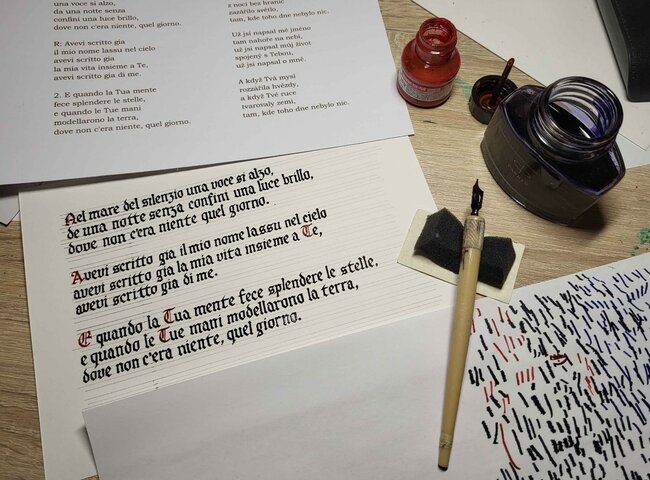 una voce si alzo,
da una notte senza
confini una luce brillo,
dove non c'era niente, quel giorno.
R: Avevi scritto gia
il mio nome lassu nel cielo
avevi scritto gia
la mia vita insieme a Te,
avevi scritto gia di me.
2. E quando la Tua mente
fece splendere le stelle,
e quando le Tue mani
modellarono la terra,
dove non c'era niente, quel giorno.
z noci bez hranic
zazářilo světlo,
tam, kde toho dne nebylo nic.
Už jsi napsal mé jméno
tam nahoře na nebi,
už jsi napsal můj život
spojený s Tebou,
už jsi napsal o mně.
A když Tvá mysl
rozzářila hvězdy,
a když Tvé ruce
tvarovaly zemi,
tam, kde toho dne nebylo nic.
Nel mare del silenzio una voce si alzo,
de una notte senza confini una luce brillo,
dove non c'era niente quel giorno.
Avevi scritto gia il mio nome lassu nel cielo
avevi scritto gia la mia vita insieme a Te,
avevi scritto gia di me.
E quando la Tua mente fece splendere le stelle.
e quando le Tue mani modellarono la terra,
dove non c'era niente, quel giorno.